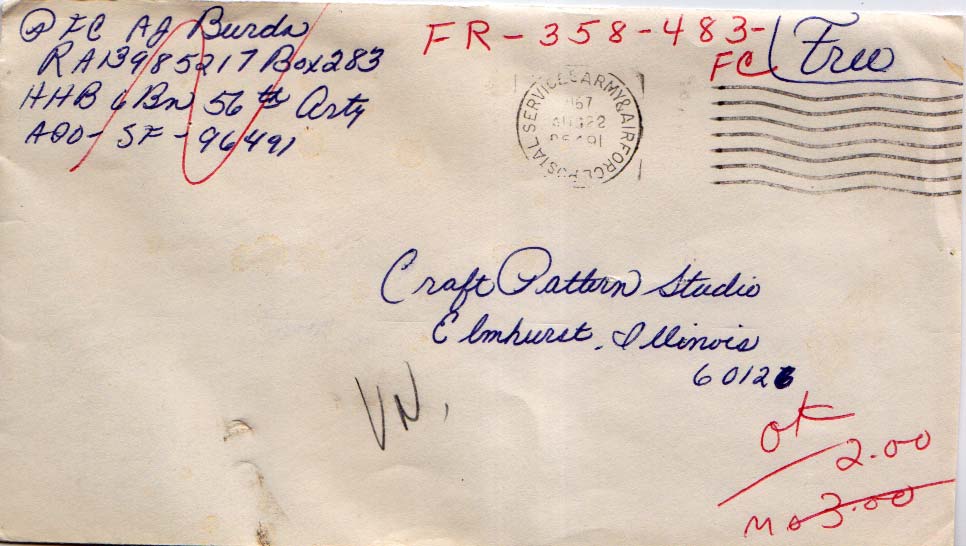 PFC AJ Burda
RA13985217 Box 283
HHB 6 Bn 56th Arty
APO - SF - 96491
FR - 358 - 483 -
FC
Free
POSTAL SERVICE ARMY & AIR FORCE
1967
AUG 22
Craft Pattern Studio
Elmhurst, Illinois
60126
VN.
OK
2.00
MO 3.00